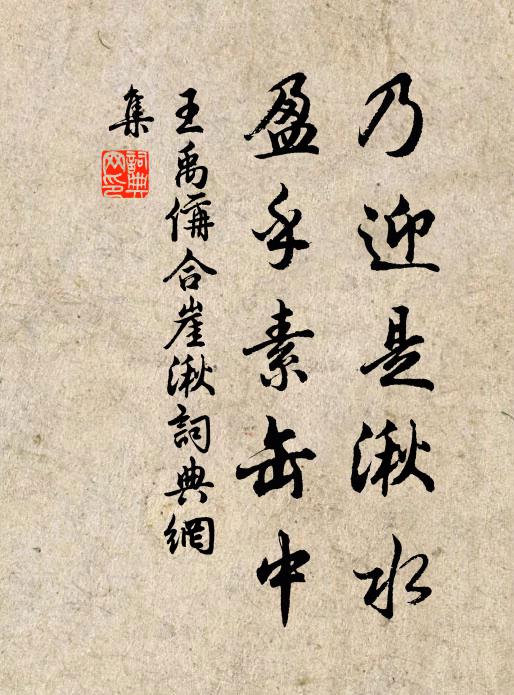 乃迎是湫水
盈乎素缶中
王禹偁合崖湫詞典網
集
詞典
网印